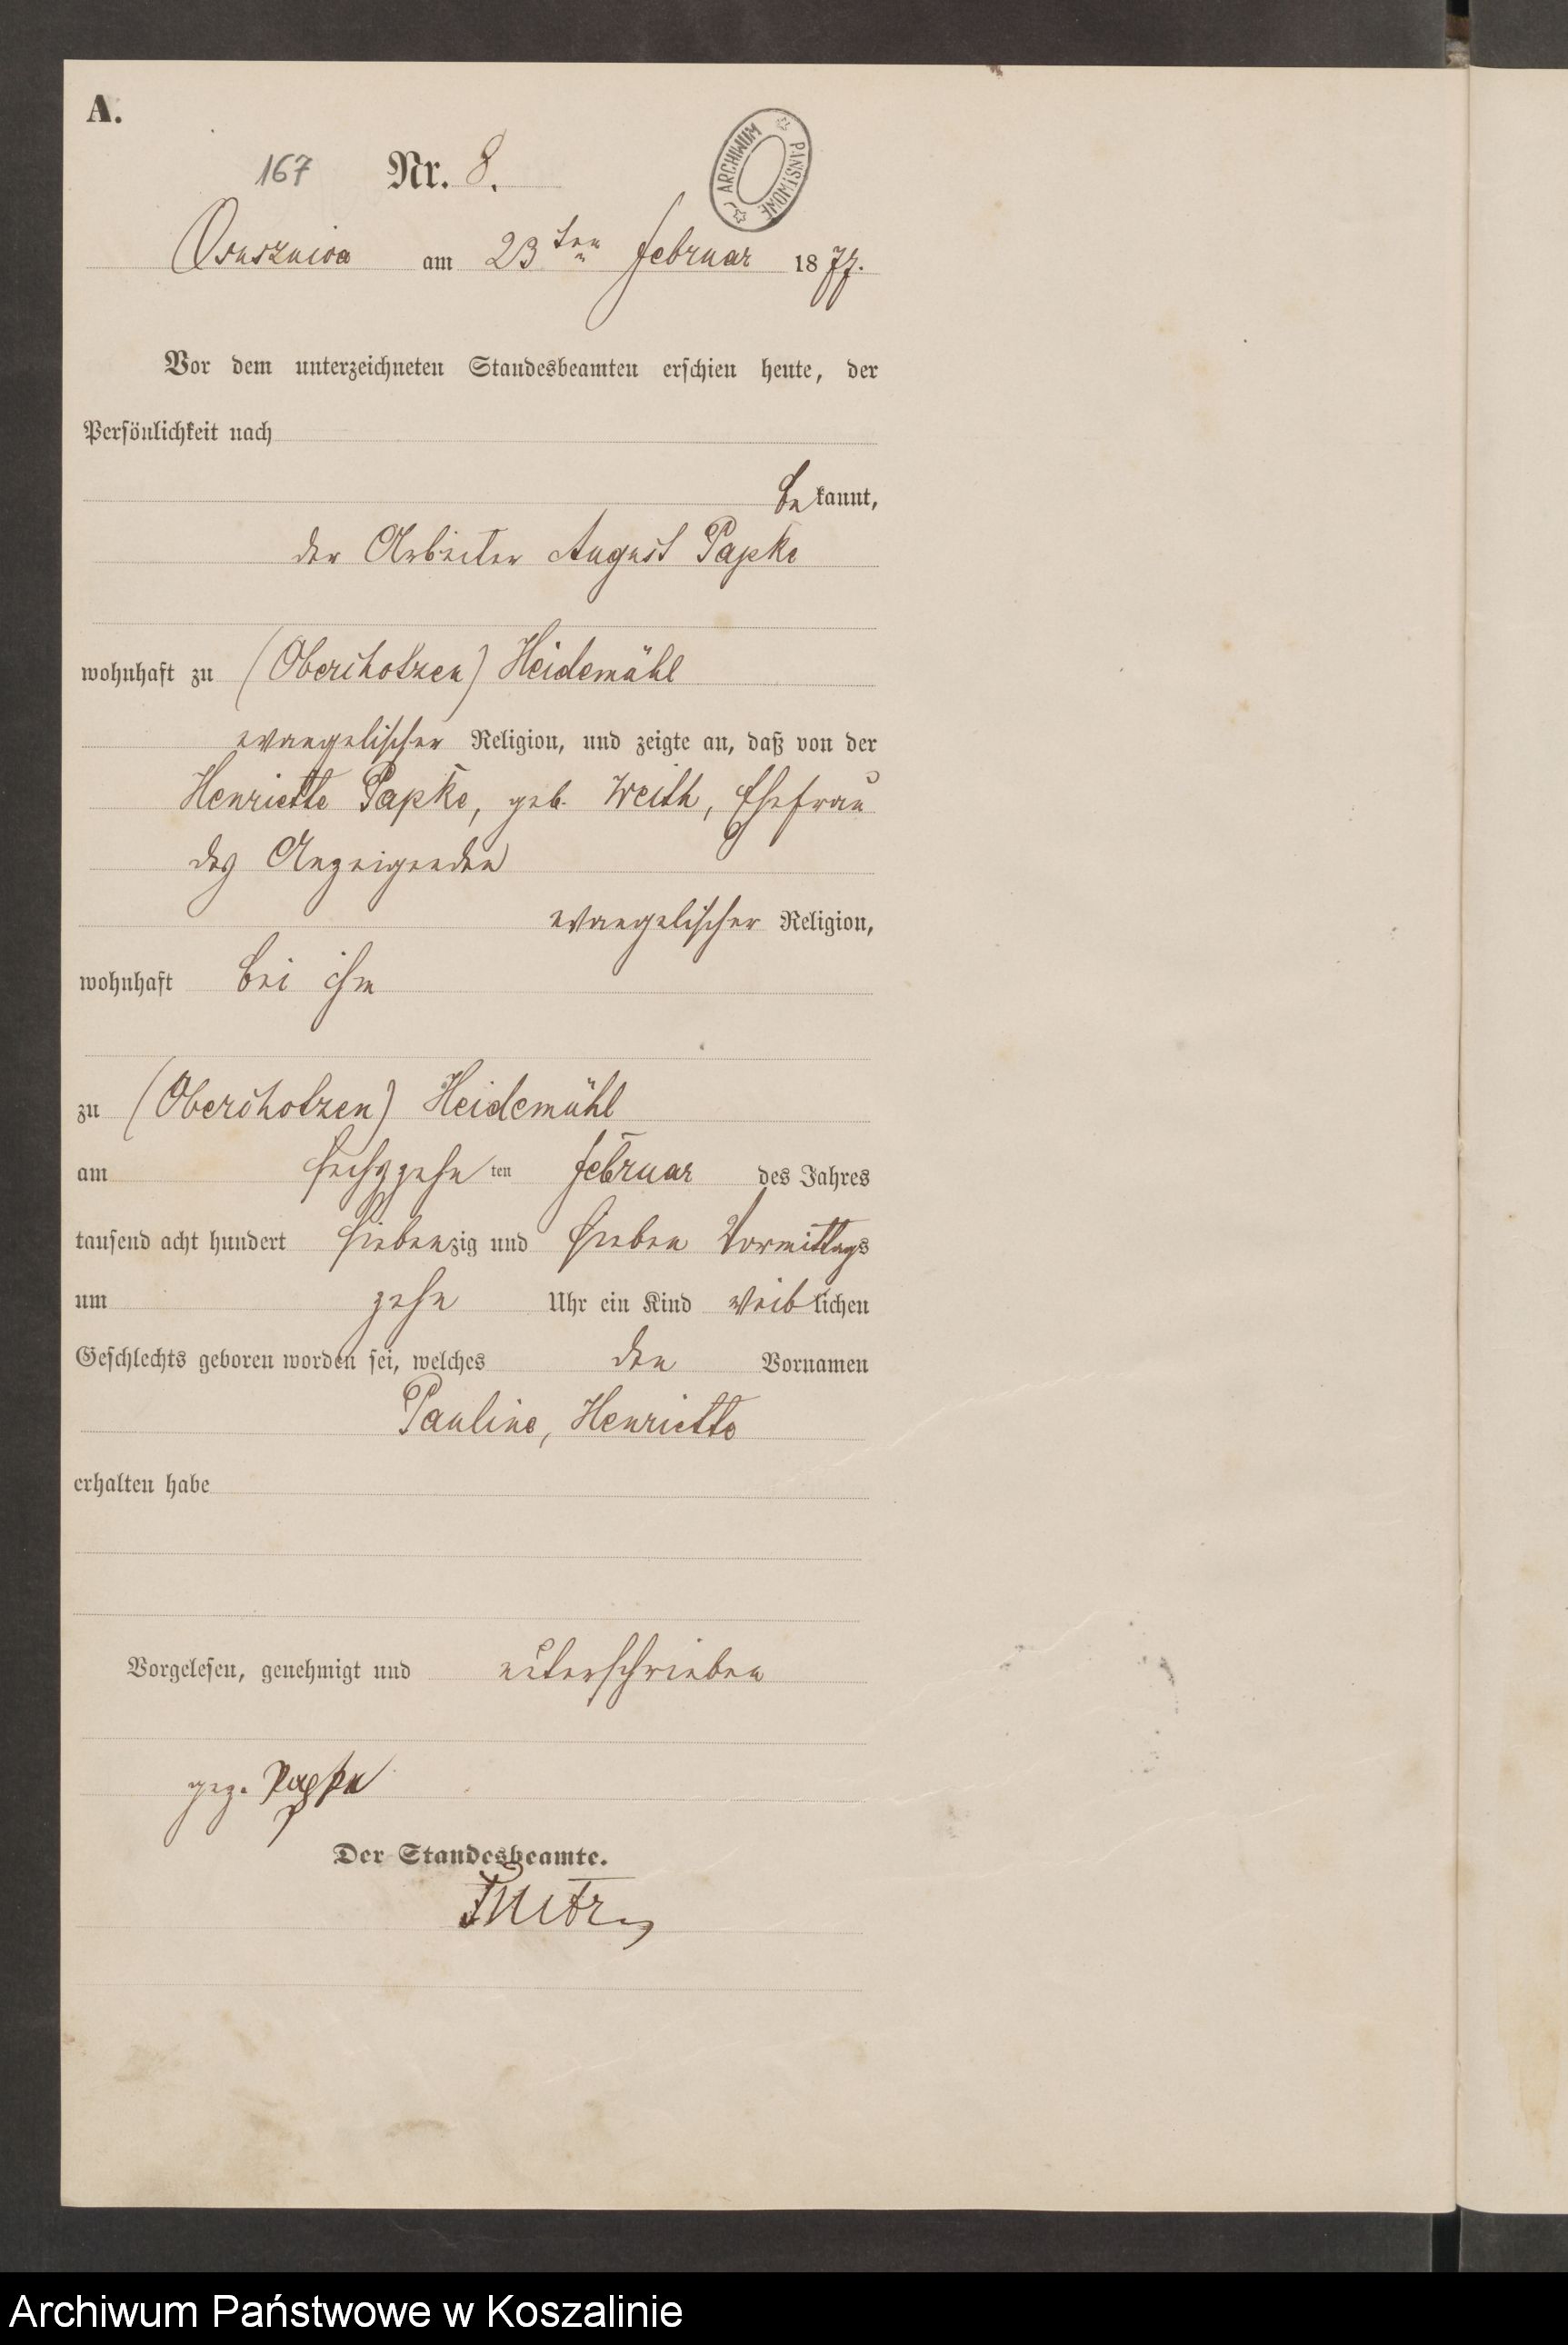 A.
167 Nr. 8.
ARCHIWUM PAŃSTWOWE
Osuszniza am 23ten Februar 1877.
Vor dem unterzeichneten Standesbeamten erschien heute, der
Persönlichkeit nach
bekannt,
der Arbeiter August Papke
wohnhaft zu Heidemühl
evangelischer Religion, und zeigte an, daß von der
Henriette Papke, geb. Weith, Ehefrau
des Anzeigenden
evangelischer Religion,
wohnhaft bei ihm
zu Heidemühl
am sechszehnten Februar des Jahres
tausend acht hundert siebenzig und sieben Vormittags
um zehn Uhr ein Kind weiblichen
Geschlechts geboren worden sei, welches den Vornamen
Pauline, Henriette
erhalten habe
Vorgelesen, genehmigt und unterschrieben
gez. Papke
Der Standesbeamte.
Archiwum Państwowe w Koszalinie